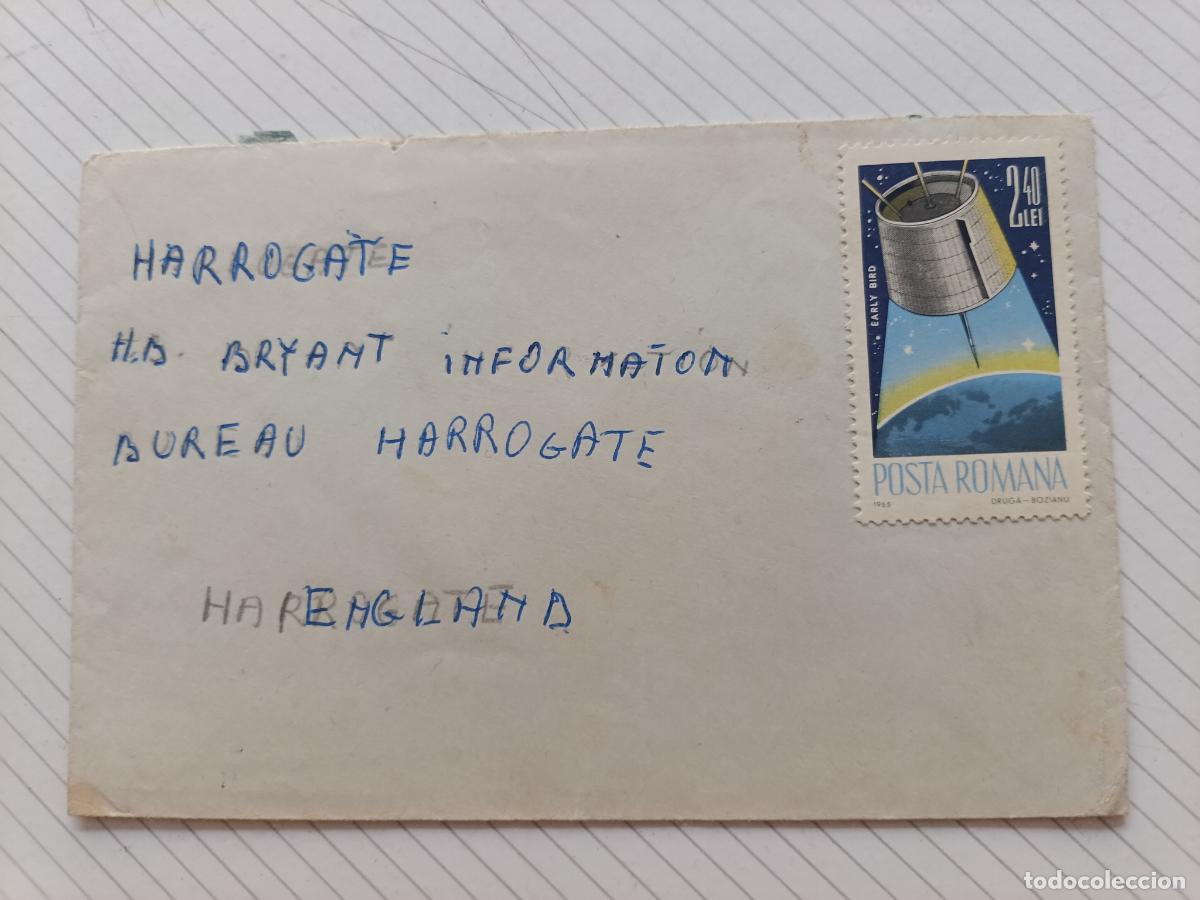 HARROGATE
H.B. BRYANT INFORMATON
BUREAU HARROGATE
HARROGATE
ENGLAND
2 40
LEI
EARLY BIRD
POSTA ROMANA
1965 DRUGA – BOZIANU
todocoleccion